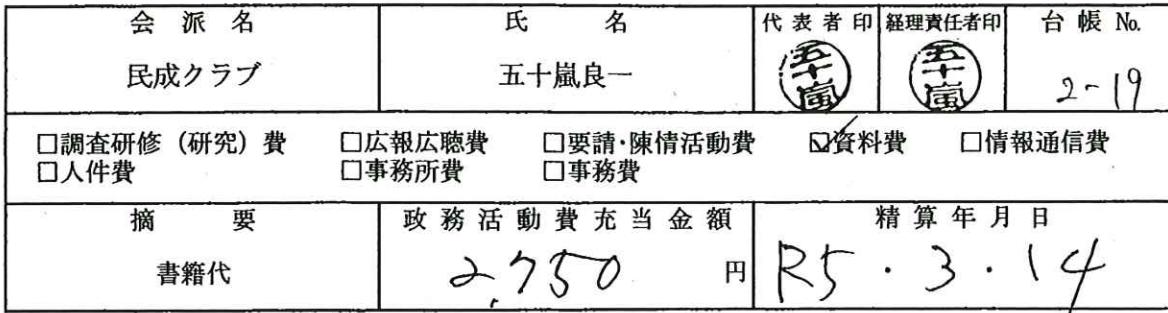 会派名 氏名 代表者印 経理責任者印 台帳No.
民成クラブ 五十嵐良一 五十嵐 五十嵐 2-19
□調査研修（研究）費 □広報広聴費 □要請・陳情活動費 ☑資料費 □情報通信費
□人件費 □事務所費 □事務費
摘要 政務活動費充当金額 精算年月日
書籍代 2,750円 R5・3・14